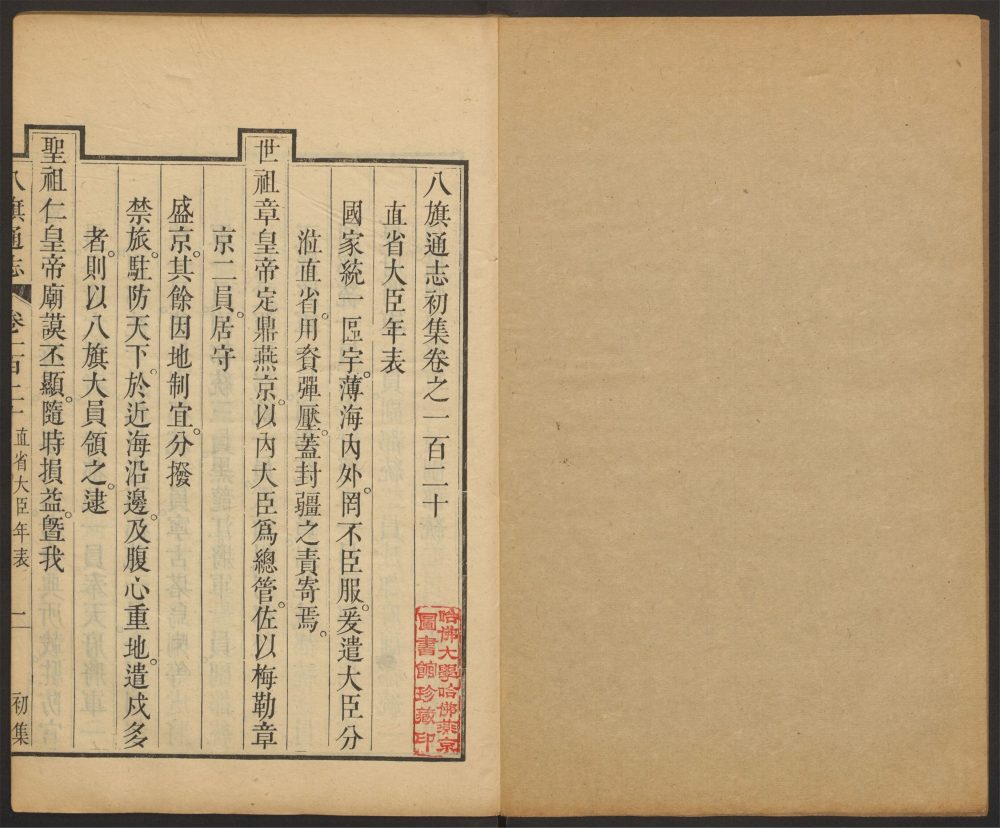 八旗通志初集卷之一百二十
直省大臣年表
國家統一區宇。薄海內外。罔不臣服。爰遣大臣分
涖直省。用資彈壓。蓋封疆之責寄焉。
世祖章皇帝定鼎燕京。以內大臣爲總管。佐以梅勒章
京二員。居守
盛京。其餘因地制宜。分撥
禁旅。駐防天下。於近海沿邊。及腹心重地。遣戍多
者。則以八旗大員領之。逮
聖祖仁皇帝廟謨丕顯。隨時損益。曁我
八旗通志 卷一百二十 直省大臣年表 一 初集
哈佛大學哈佛燕京
圖書館珍藏印